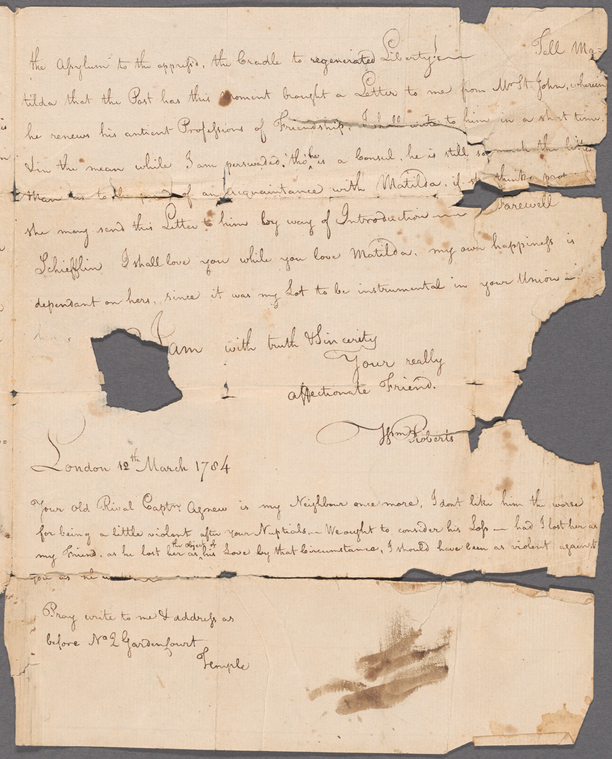 the Asylum to the oppress'd, the Cradle to regenerated Liberty! — Tell Ma-
tilda that the Post has this moment brought a Letter to me from Mr. St. John, wherein
he renews his antient Professions of Friendship. I shall write to him in a short time,
& in the mean while I am perswaded, tho he is a Consul, he is still so much the
than as to the of an acquaintance with Matilda, if she thinks
she may send this Letter to him by way of Introduction — Farewell
Schiefflin I shall love you while you love Matilda. my own happiness is
dependant on hers, since it was my Lot to be instrumental in your Union —
I am with truth & Sincerity
Your really
affectionate Friend.
Wm Roberts
London 12th March 1784
Your Old Rival Captn. Agnew is my Neighbour once more, I dont like him the worse
for being a little violent after your Nuptials — We ought to consider his Loss — had I lost her as
my Friend, as he lost her as the object of his Love by that Circumstance, I should have been as violent against
you as he
Pray write to me & address as
before No 2 Garden Court
Temple